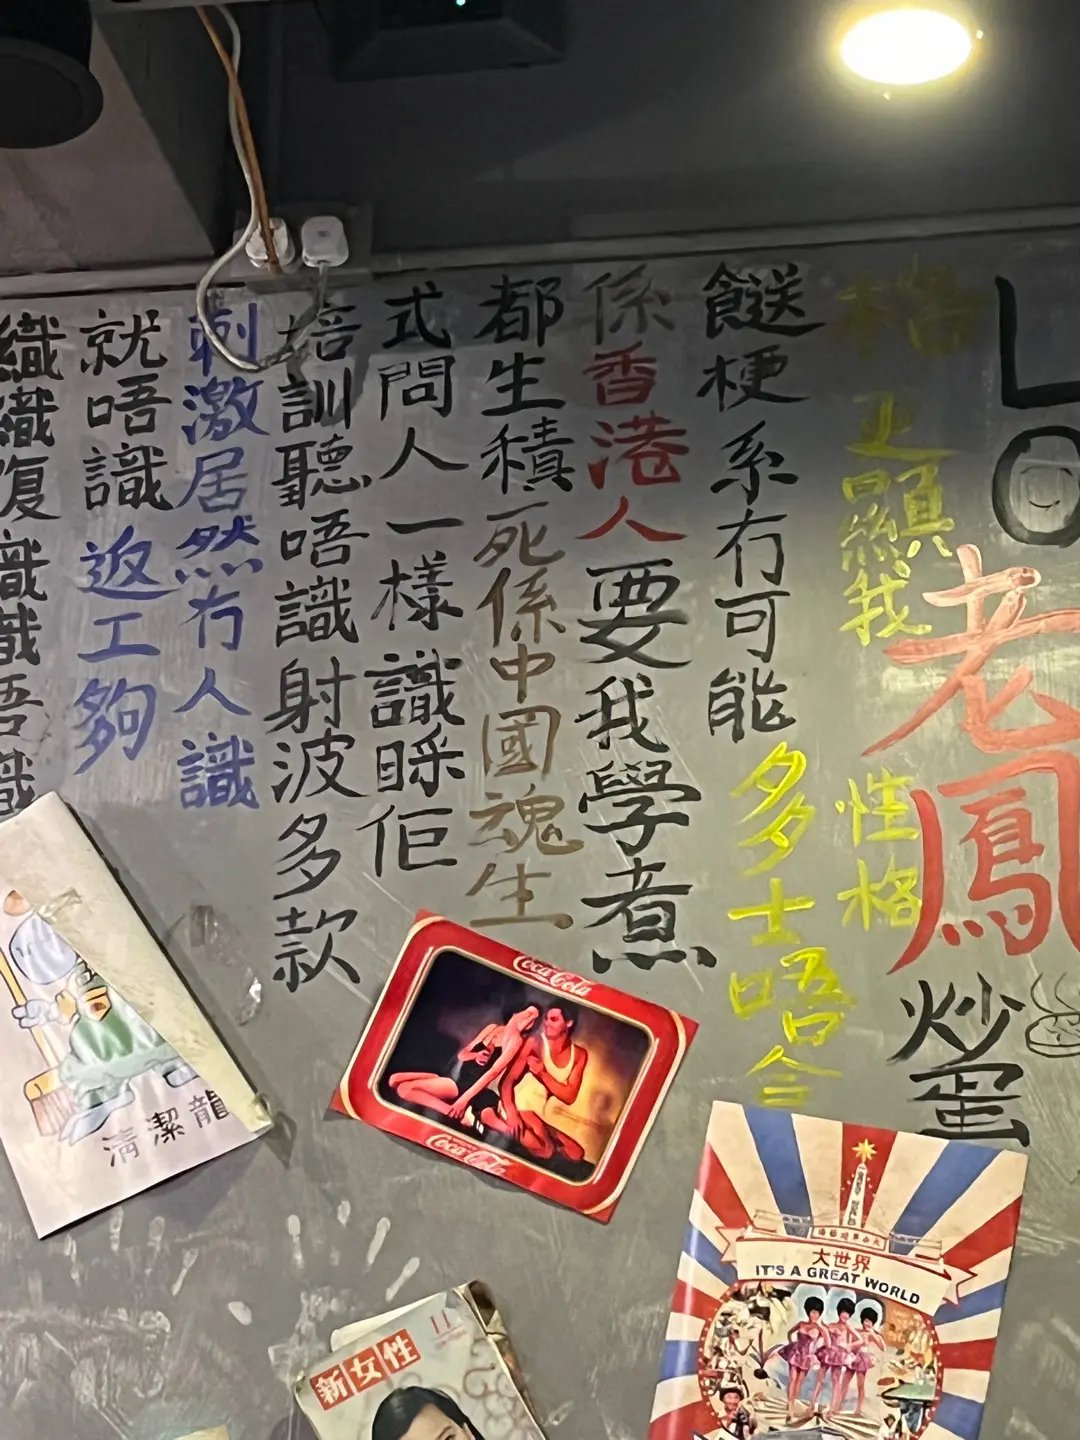 LO
老鳳
炒蛋
更顯
絲我
性格
餸梗系冇可能
多士唔
係香港人要我學煮
都生積死係中國魂生
式問人一樣識睬佢
培訓聽唔識射波多款
刺激居然冇人識
就唔識返工夠
織識復識識唔識
清潔龍
Coca-Cola
Coca-Cola
大世界
IT'S A GREAT WORLD
新女性
11